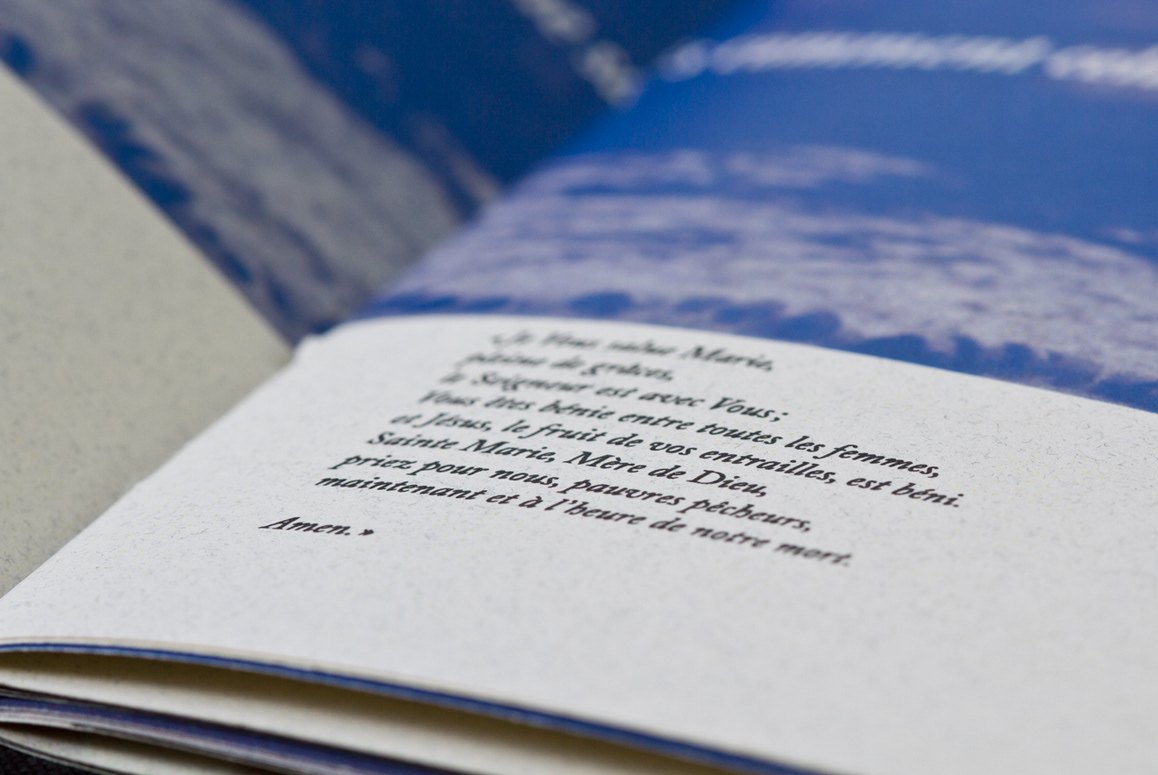 «Je Vous salue Marie,
pleine de grâces,
le Seigneur est avec Vous;
Vous êtes bénie entre toutes les femmes,
et Jésus, le fruit de vos entrailles, est béni.
Sainte Marie, Mère de Dieu,
priez pour nous, pauvres pêcheurs,
maintenant et à l'heure de notre mort.
Amen.»